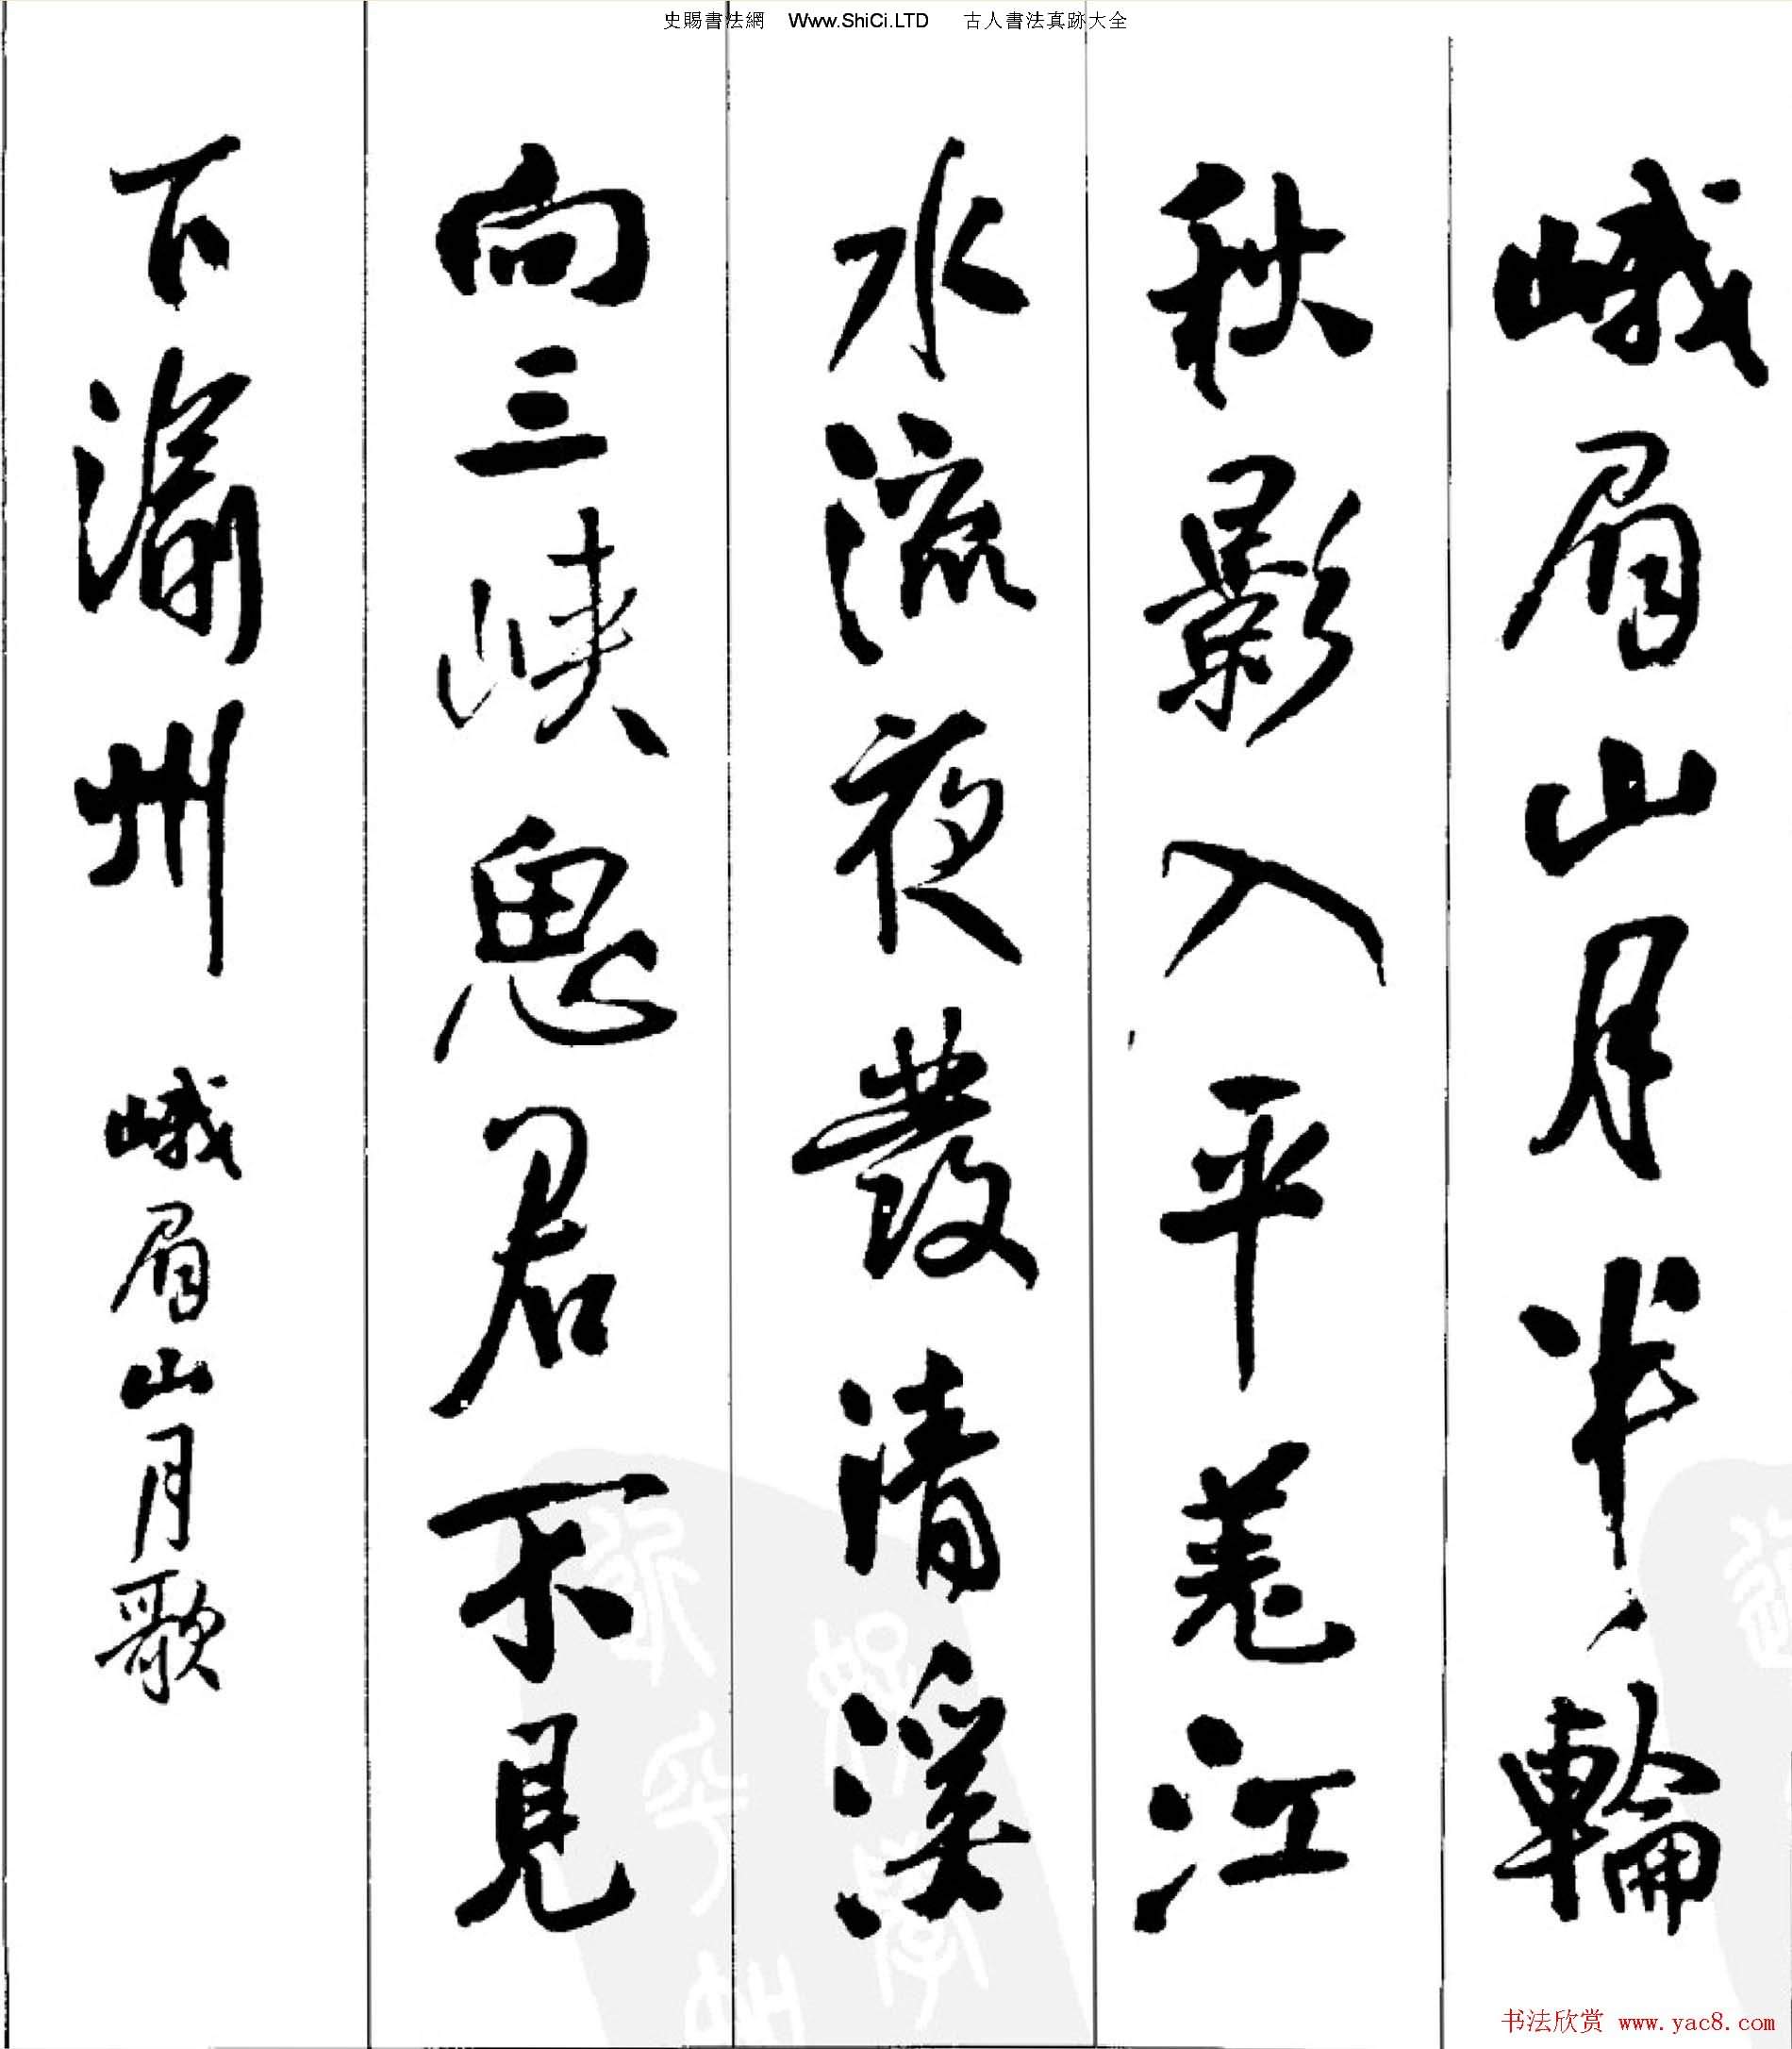 史賜書法網 Www.ShiCi.LTD 古人書法真跡大全
峨眉山月半輪
秋影入平羌江
水流夜發清溪
向三峽思君不見
下渝州 峨眉山月歌
书法欣赏 www.yac8.com